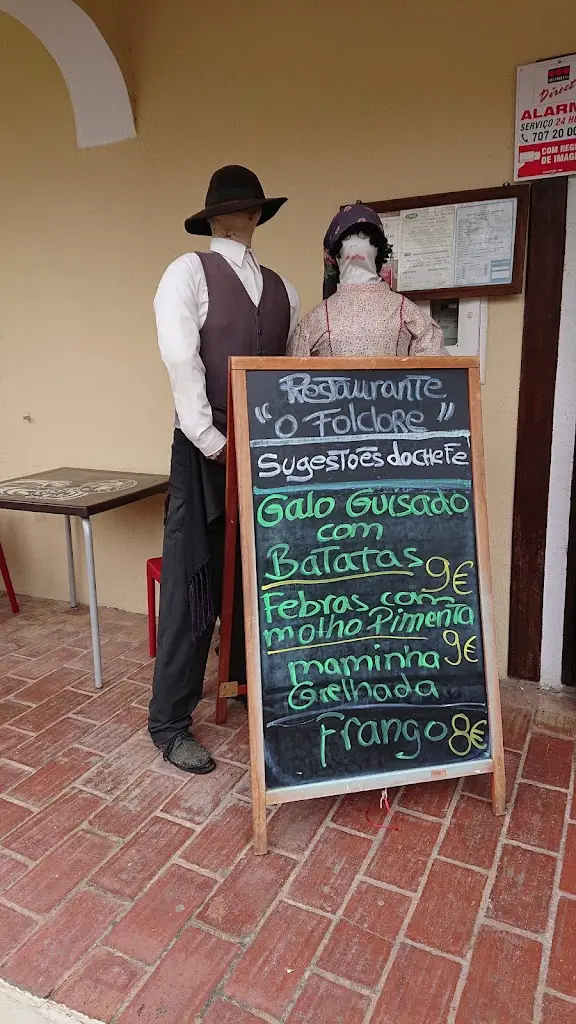 Direct
ALARM
SERVIÇO 24 H
707 20 00
COM REG
DE IMAG
Restaurante
"O Folclore"
Sugestões do chefe
Galo Guisado
com
Batatas 9€
Febras com
molho Pimenta
9€
maminha
Grelhada
Frango 8€